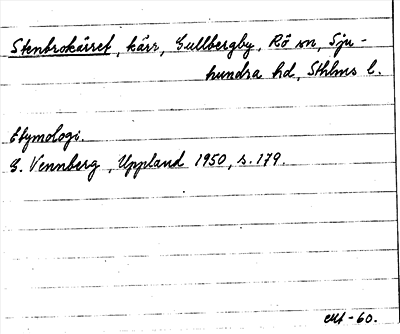 Stenbrokärret, kärr, Gullbergby, Rö sn, Sju-
hundra hd, Sthlms l.
Etymologi.
G. Vennberg, Uppland 1950, s. 179.
-60.